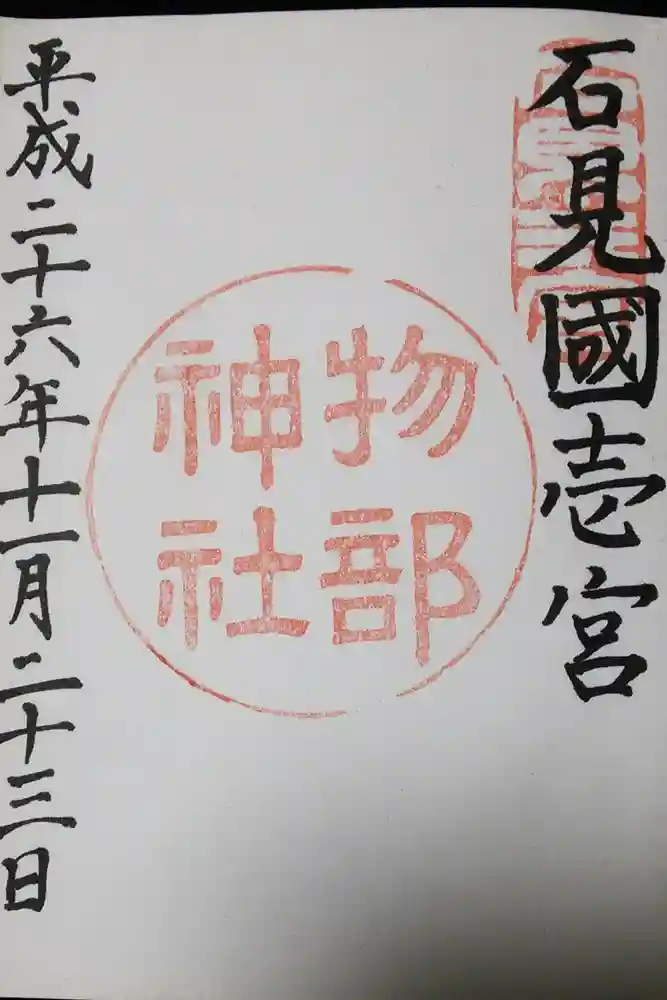 石見國壱宮
物部
神社
平成二十六年十一月二十三日